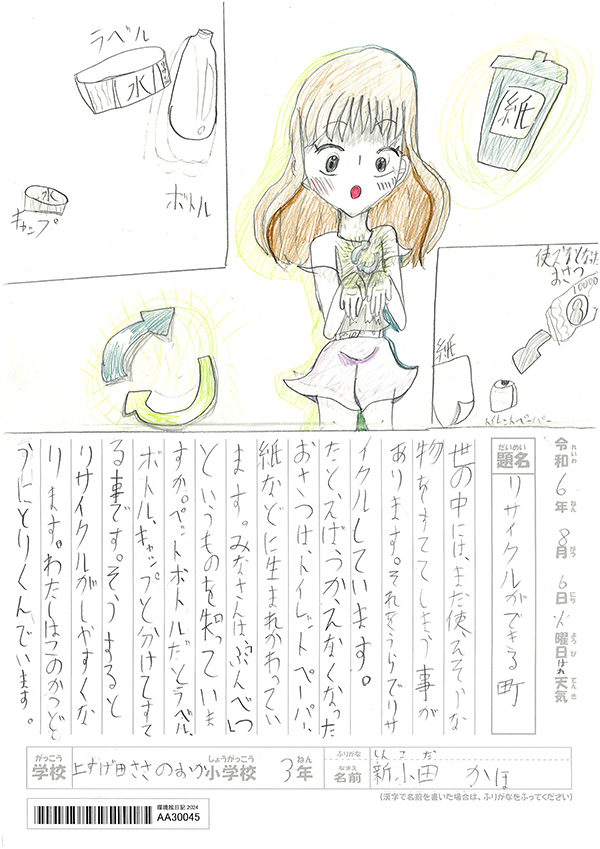 ラベル
水
ボトル
水
キャップ
紙
使えなくなった
おさつ
10000
紙
トイレットペーパー
令和6年8月6日火曜日はれ天気
れいわ ねん がつ にち ようび てんき
だいめい
題名
リサイクルができる町
世の中には、まだ使えそうな
物をすててしまう事が
あります。それをうらでリサ
イクルしています。
たとえば、つかえなくなった
おさつは、トイレットペーパー、
紙などに生まれかわってい
ます。みなさんは、ぶんべつ
というものを知っていま
すか。ペットボトルだとラベル、
ボトル、キャップと分けてすて
る事です。そうすると
リサイクルがしやすくな
ります。わたしはこのかつどう
にとりくんでいます。
がっこう
学校
上すげ田ささのおか
しょうがっこう
小学校
3
ねん
年
ふりがな
しんこだ
なまえ
名前
新小田 かほ
(漢字で名前を書いた場合は、ふりがなをふってください)
環境絵日記 2024
AA30045